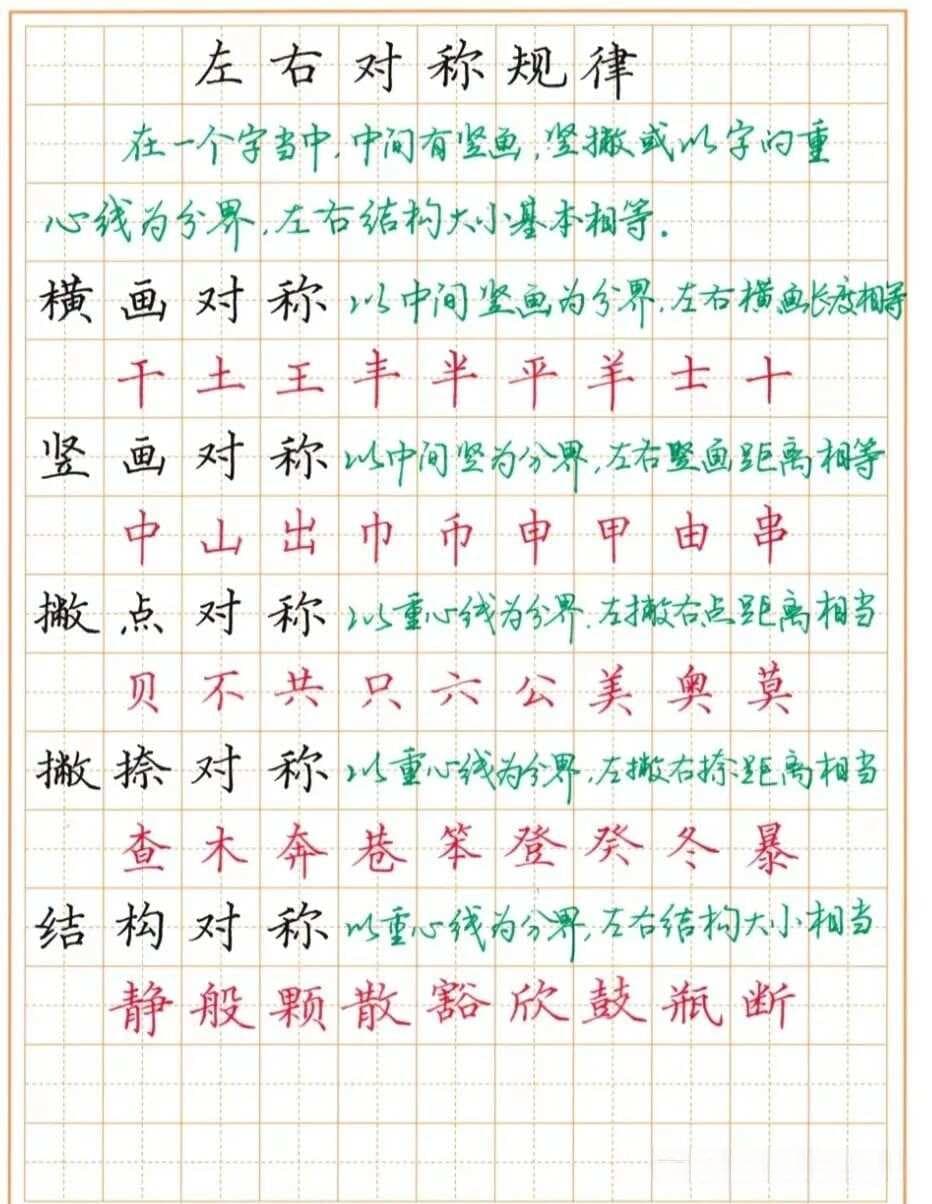 左右对称规律
在一个字当中,中间有竖画,竖撇或以字的重
心线为分界,左右结构大小基本相等.
横画对称 以中间竖画为分界,左右横画长度相等
干土王丰半平羊士十
竖画对称 以中间竖为分界,左右竖画距离相等
中山出巾币申甲由串
撇点对称 以重心线为分界,左撇右点距离相当
贝不共只六公美奥莫
撇捺对称 以重心线为分界,左撇右捺距离相当
查木奔巷笨登癸冬暴
结构对称 以重心线为分界,左右结构大小相当
静般颗散豁欣鼓瓶断